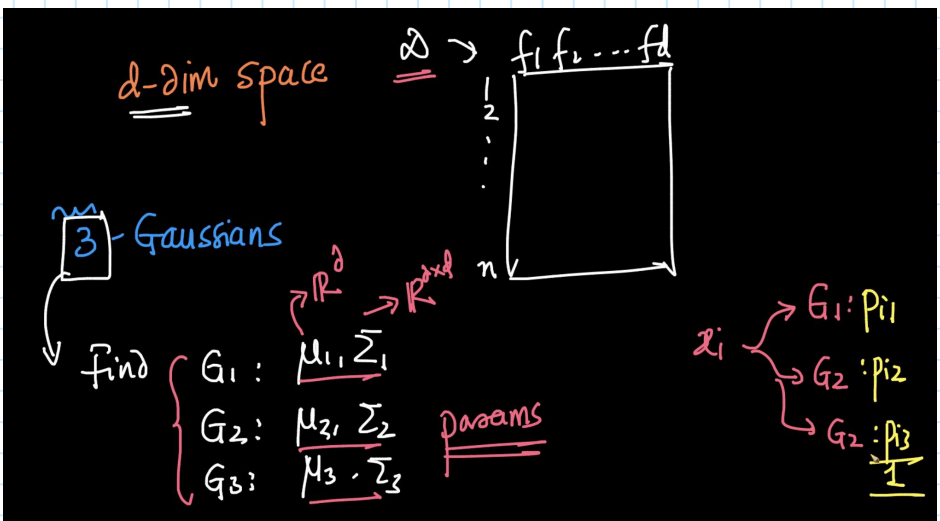 d-dim space
D → f1 f2 .... fd
1
2
:
.
n
3 - Gaussians
ℝ^d
ℝ^d×d
find
G1 : μ1, Σ1
G2 : μ2, Σ2
G3 : μ3 . Σ3
params
xi
G1 : pi1
G2 : pi2
G2 : pi3
1